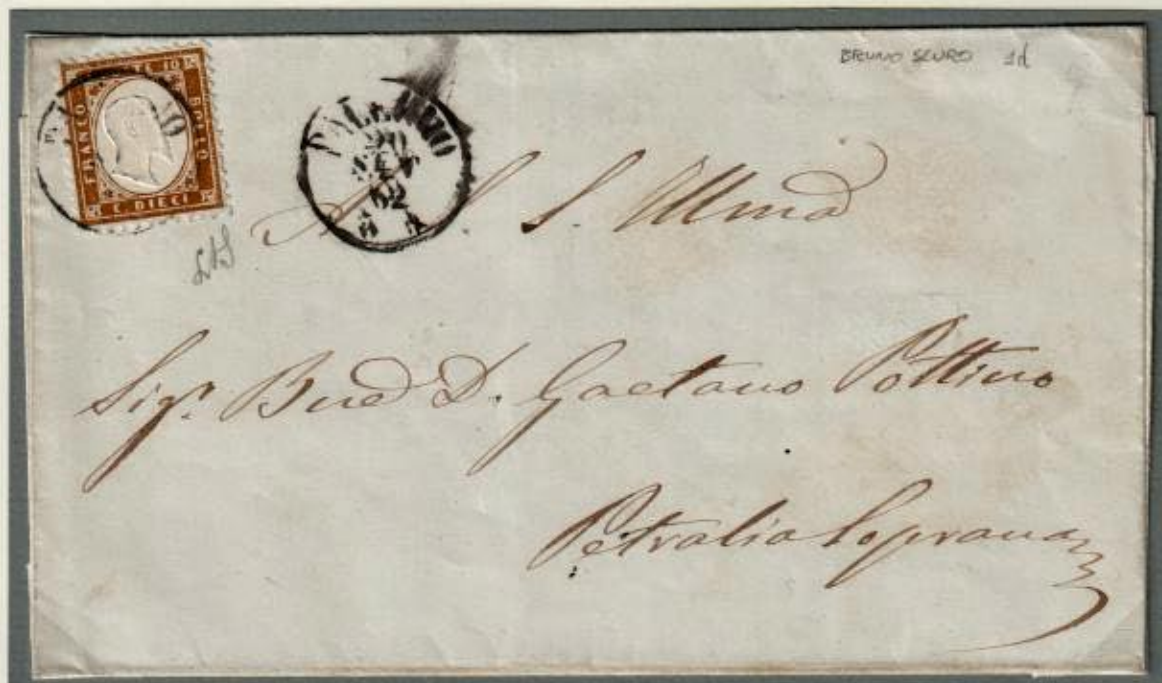 BRUNO SCURO 1d
C. DIECI
FRANCO
BOLLO
PALERMO
20
SET
62
A S. S. Illma
Sigr. Bne D. Gaetano Pottino
Petralia Soprana